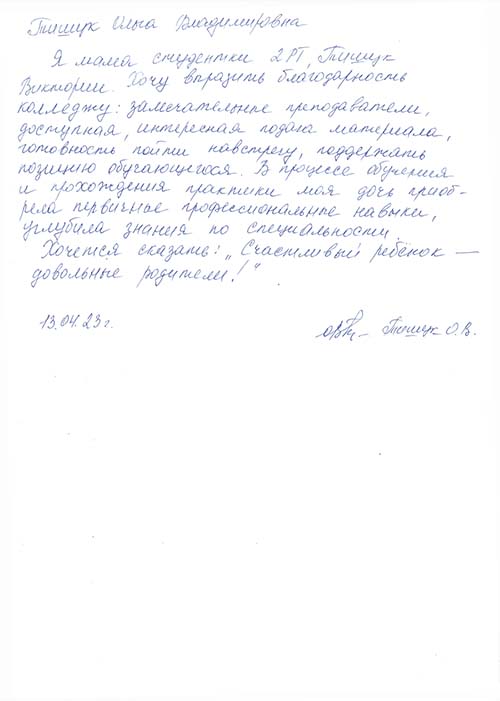 Тишук Ольга Владимировна
Я мама студентки 2 РТ, Тишук
Виктории. Хочу выразить благодарность
колледжу: замечательные преподаватели,
доступная, интересная подача материала,
готовность пойти навстречу, поддержать
позицию обучающегося. В процессе обучения
и прохождения практики моя дочь приоб-
рела первичные профессиональные навыки,
углубила знания по специальности.
Хочется сказать: „Счастливый ребёнок —
довольные родители!"
13.04.23 г.
Тишук О.В.